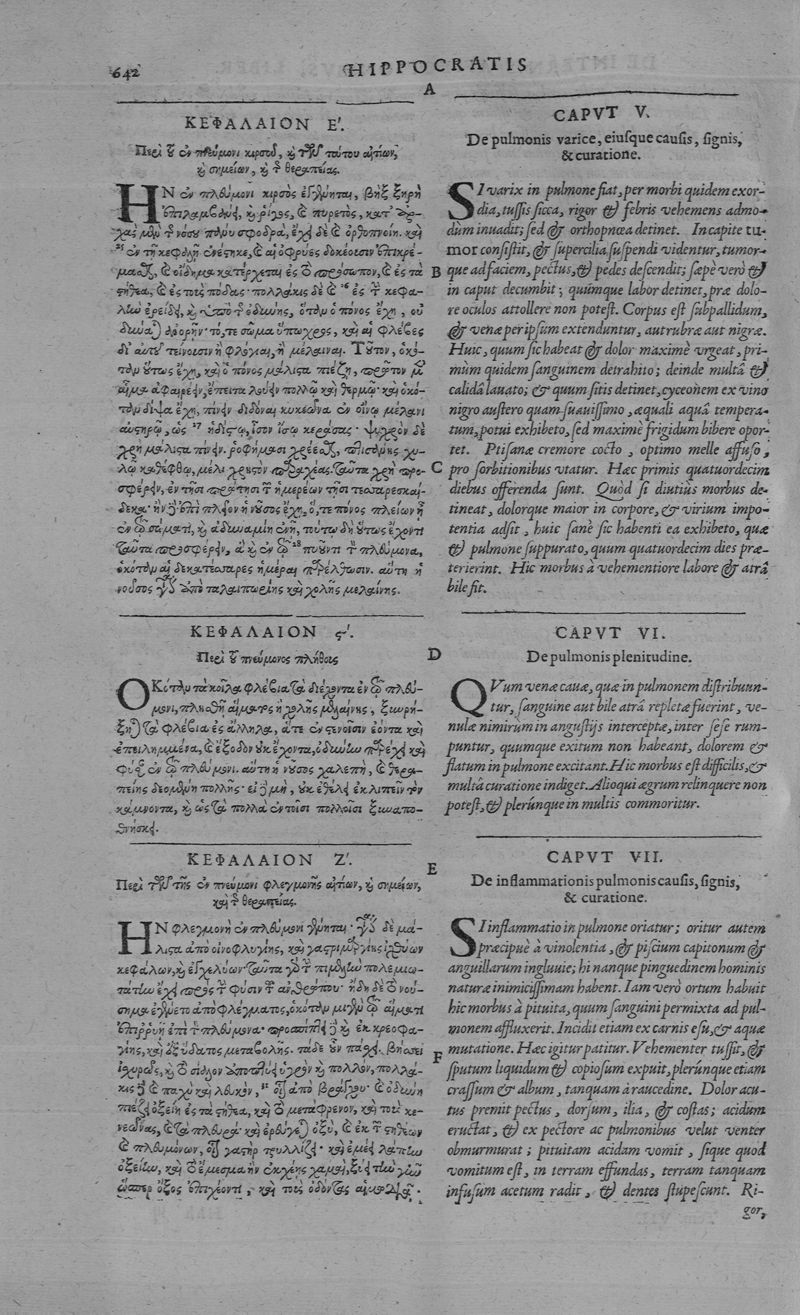 642
HIPPOCRATIS
A
ΚΕΦΑΛΑΙΟΝ Ε'.
Περὶ τοῦ ἐν πνεύμονι κιρσοῦ, καὶ τῶν τούτου αἰτίων,
καὶ σημείων, καὶ τῆς θεραπείας.
ΗΝ ἐν πλεύμονι κιρσὸς ἐγγένηται, βὴξ ξηρὴ
ἐπιλαμβάνει, καὶ ῥῖγος, καὶ πυρετὸς, κατ' ἀρ-
χὰς μὲν τῆς νόσου πάνυ σφόδρα, ἔχει δὲ καὶ ὀρθοπνοίη. καὶ
ἐν τῇ κεφαλῇ ἐνέστηκε, καὶ αἱ ὀφρύες δοκέουσιν ἐπικρέ-
μασθαι, καὶ οἴδημα κατέρχεται ἐς τὸ πρόσωπον, καὶ ἐς τὰ
στήθεα, καὶ ἐς τοὺς πόδας· πολλάκις δὲ καὶ ἐς τὴν κεφα-
λὴν ἐρείδει, καὶ ὑπὸ τῆς ὀδύνης, ὅταν ὁ πόνος ἔχῃ, οὐ
δύναται ἀνορῇν· τό, τε σῶμα ὕπωχρος, καὶ αἱ φλέβες
δι' αὐτοῦ τείνουσιν ἢ φλόγιαι, ἢ μέλαιναι. Τοῦτον, ὁκό-
ταν οὕτως ἔχῃ, καὶ ὁ πόνος μάλιστα πιέζῃ, πρῶτον μὲν
αἷμα ἀφαιρέειν, ἔπειτα λούειν πολλῷ καὶ θερμῷ· καὶ ὁκό-
ταν δίψα ἔχῃ, πίνειν διδόναι κυκεῶνα ἐν οἴνῳ μέλανι
αὐστηρῷ, ὡς ἡδίστῳ, ἴσον ἴσῳ κεράσας· ψυχρὸν δὲ
χρὴ μάλιστα πίνειν. ῥοφήμασι χρέεσθαι, πτισάνης χυ-
λῷ καθέφθῳ, μέλι χρηστὸν παραχέας. ταῦτα χρὴ προσ-
φέρειν, ἐν τῇσι πρώτῃσι τῶν ἡμερέων τῇσι τεσσαρεσκαί-
δεκα· ἢν δ' ἐπὶ πλέον ἡ νοῦσος ἔχῃ, ὅ, τε πόνος πλείων ᾖ
ἐν τῷ σώματι, καὶ ἀδυναμίη ἐνῇ, τούτῳ δὴ οὕτως ἔχοντι
ταῦτα προσφέρειν, ἃ καὶ ἐν τῷ πυοῦντι τὸν πλεύμονα,
ὁκόταν αἱ δεκατέσσαρες ἡμέραι παρέλθωσιν. αὕτη ἡ
νοῦσος γίνεται ἀπὸ ταλαιπωρίης καὶ χολῆς μελαίνης.
ΚΕΦΑΛΑΙΟΝ ϛ'.
Περὶ τοῦ πνεύμονος πλήθους
ΟΚόταν τὰ κοῖλα φλέβια τὰ διέχοντα ἐν τῷ πλεύ-
μονι, πλησθῇ αἵματος ἢ χολῆς μελαίνης, ξυῤῥή-
ξῃ τὰ φλέβια ἐς ἄλληλα, ἅτε ἐν στενοῖσιν ἐόντα καὶ
ἀπειλημμένα, καὶ ἔξοδον οὐκ ἔχοντα, ὀδύνην παρέχει καὶ
φῦσαν ἐν τῷ πλεύμονι. αὕτη ἡ νοῦσος χαλεπὴ, καὶ θερα-
πείης δεομένη πολλῆς· εἰ δὲ μὴ, οὐκ ἐθέλει ἐκλιπεῖν τὸν
κάμνοντα, καὶ ὡς τὰ πολλὰ ἐν τοῖσι πολλοῖσι ξυναπο-
θνήσκει.
ΚΕΦΑΛΑΙΟΝ Ζ'.
Περὶ τῶν τῆς ἐν πνεύμονι φλεγμονῆς αἰτίων, καὶ σημείων,
καὶ τῆς θεραπείας.
ΗΝ φλεγμονὴ ἐν πλεύμονι γένηται· γίνεται δὲ μά-
λιστα ἀπὸ οἰνοφλυγίης, καὶ γαστριμαργίης ἰχθύων
κεφάλων, καὶ ἐγχελύων· ταῦτα γὰρ τὴν πιμελὴν πολεμιω-
τάτην ἔχει πρὸς τὴν φύσιν τὴν ἀνθρώπου· ἤδη δὲ τὸ νού-
σημα ἐγένετο ἀπὸ φλέγματος, ὁκόταν μιγὲν τῷ αἵματι
ἐπιῤῥυῇ ἐπὶ τὸν πλεύμονα· προσπίπτει δὲ καὶ ἐκ κρεοφα-
γίης, καὶ ἐξ ὕδατος μεταβολῆς. τάδε οὖν πάσχει. βήσσει
ἰσχυρῶς, καὶ τὸ σίαλον ἀποπτύει ὑγρὸν καὶ πολλὸν, πολλά-
κις δὲ καὶ παχὺ καὶ λευκὸν, οἷα ἀπὸ βράγχου· καὶ ὀδύνη
πιέζει ὀξείη ἐς τὰ στήθεα, καὶ τὸ μετάφρενον, καὶ τοὺς κε-
νεῶνας, καὶ τὰ πλευρά· καὶ ἐρυγγάνει ὀξὺ, καὶ ἐκ τῶν στηθέων
καὶ πλευμόνων, οἷα γαστὴρ τρυλλίζει· καὶ ἐμέει λάπην
ὀξείην, καὶ τὸ ἔμεσμα ἢν ἐκχέῃς χαμαὶ, ξύει τὴν γῆν
ὥσπερ ὄξος ἐπιχέοντι, καὶ τοὺς ὀδόντας αἱμωδιᾷ·
CAPVT V.
De pulmonis varice, eiusque causis, signis,
& curatione.
SI varix in pulmone fiat, per morbi quidem exor-
dia, tussis sicca, rigor & febris vehemens admo-
dum inuadit; sed & orthopnœa detinet. In capite tu-
mor consistit, & supercilia suspendi videntur, tumor-
B que ad faciem, pectus, & pedes descendit; sæpe verò &
in caput decumbit; quumque labor detinet, præ dolo-
re oculos attollere non potest. Corpus est subpallidum,
& venæ per ipsum extenduntur, aut rubræ aut nigræ.
Huic, quum sic habeat & dolor maximè vrgeat, pri-
mùm quidem sanguinem detrahito; deinde multâ &
calidâ lauato; & quum sitis detinet, cyceonem ex vino
nigro austero quam suauissimo, æquali aquâ tempera-
tum, potui exhibeto, sed maximè frigidum bibere opor-
tet. Ptisanæ cremore cocto, optimo melle affuso,
C pro sorbitionibus vtatur. Hæc primis quatuordecim
diebus offerenda sunt. Quòd si diutiùs morbus de-
tineat, dolorque maior in corpore, & virium impo-
tentia adsit, huic sanè sic habenti ea exhibeto, quæ
& pulmone suppurato, quum quatuordecim dies præ-
terierint. Hic morbus à vehementiore labore & atrâ
bile fit.
CAPVT VI.
D De pulmonis plenitudine.
QVum venæ cauæ, quæ in pulmonem distribuun-
tur, sanguine aut bile atrâ repletæ fuerint, ve-
nulæ nimirum in angustijs interceptæ, inter sese rum-
puntur, quumque exitum non habeant, dolorem &
flatum in pulmone excitant. Hic morbus est difficilis, &
multâ curatione indiget. Alioqui ægrum relinquere non
potest, & plerúnque in multis commoritur.
CAPVT VII.
E De inflammationis pulmonis causis, signis,
& curatione.
SI inflammatio in pulmone oriatur; oritur autem
præcipuè à vinolentia, & piscium capitonum &
anguillarum ingluuie; hi nanque pinguedinem hominis
naturæ inimicissimam habent. Iam verò ortum habuit
hic morbus à pituita, quum sanguini permixta ad pul-
monem affluxerit. Incidit etiam ex carnis esu, & aquæ
F mutatione. Hæc igitur patitur. Vehementer tussit, &
sputum liquidum & copiosum expuit, plerúnque etiam
crassum & album, tanquam à raucedine. Dolor acu-
tus premit pectus, dorsum, ilia, & costas; acidum
eructat, & ex pectore ac pulmonibus velut venter
obmurmurat; pituitam acidam vomit, sique quod
vomitum est, in terram effundas, terram tanquam
infusum acetum radit, & dentes stupescunt. Ri-
gor,